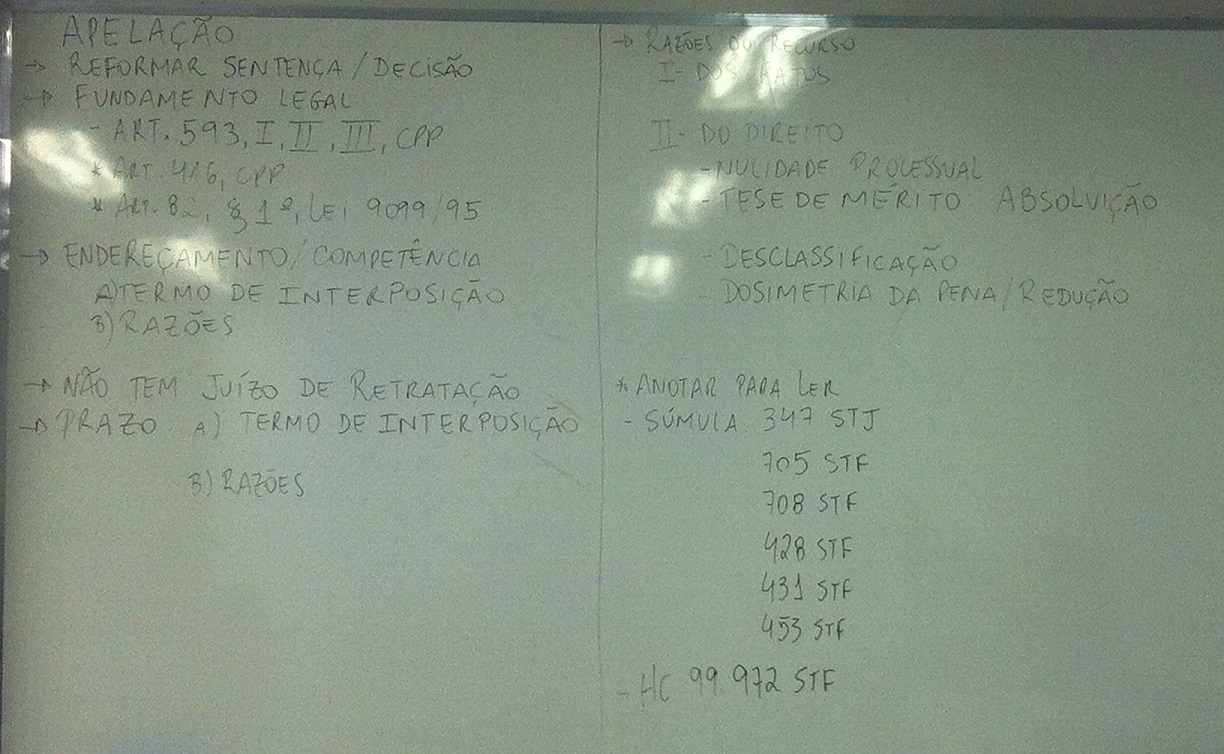 APELAÇÃO
→ REFORMAR SENTENÇA/DECISÃO
→ FUNDAMENTO LEGAL
- ART. 593, I, II, III, CPP
* ART. 416, CPP
* ART. 82, § 1º, LEI 9099/95
→ ENDEREÇAMENTO/COMPETÊNCIA
A) TERMO DE INTERPOSIÇÃO
B) RAZÕES
→ NÃO TEM JUÍZO DE RETRATAÇÃO
→ PRAZO A) TERMO DE INTERPOSIÇÃO
B) RAZÕES
→ RAZÕES DO RECURSO
I- DOS FATOS
II- DO DIREITO
- NULIDADE PROCESSUAL
- TESE DE MÉRITO: ABSOLVIÇÃO
- DESCLASSIFICAÇÃO
- DOSIMETRIA DA PENA/REDUÇÃO
* ANOTAR PARA LER
- SÚMULA: 347 STJ
705 STF
708 STF
428 STF
431 STF
453 STF
- HC 99.972 STF